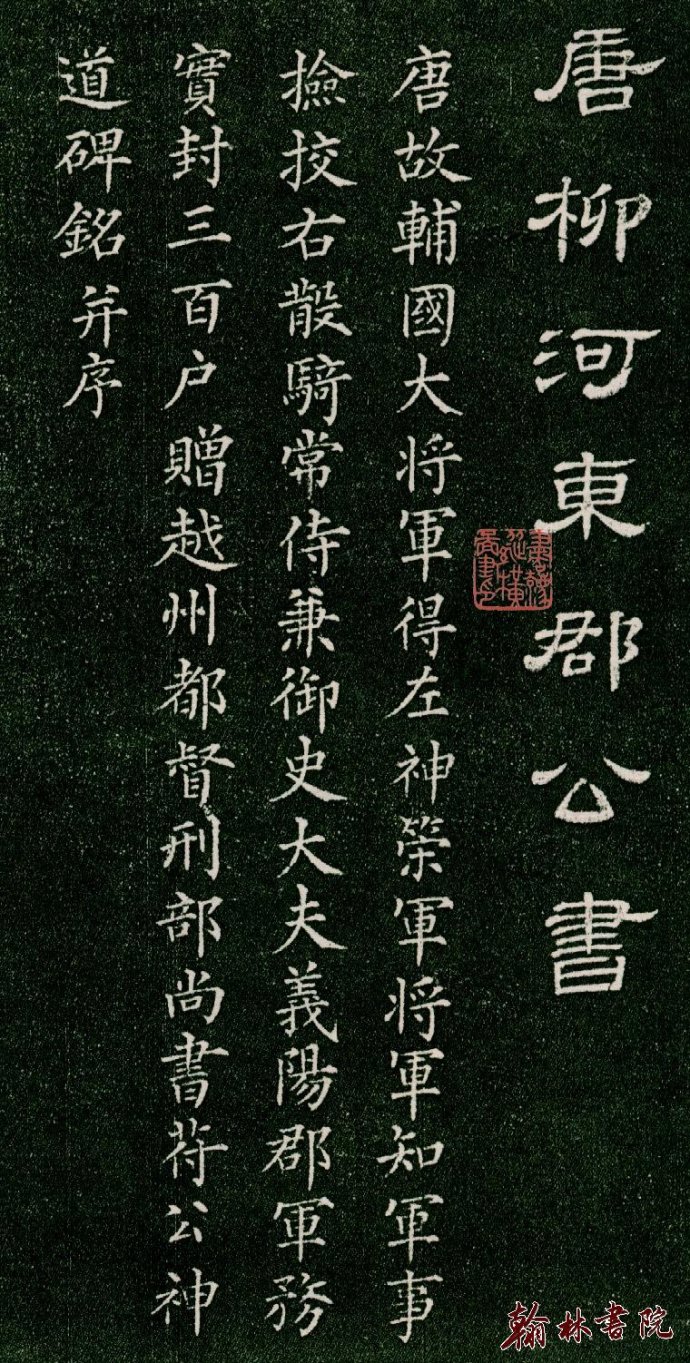 唐柳河東郡公書
唐故輔國大將軍得左神策軍將軍知軍事
撿挍右散騎常侍兼御史大夫義陽郡軍務
實封三百户贈越州都督刑部尚書苻公神
道碑銘并序
翰林書院